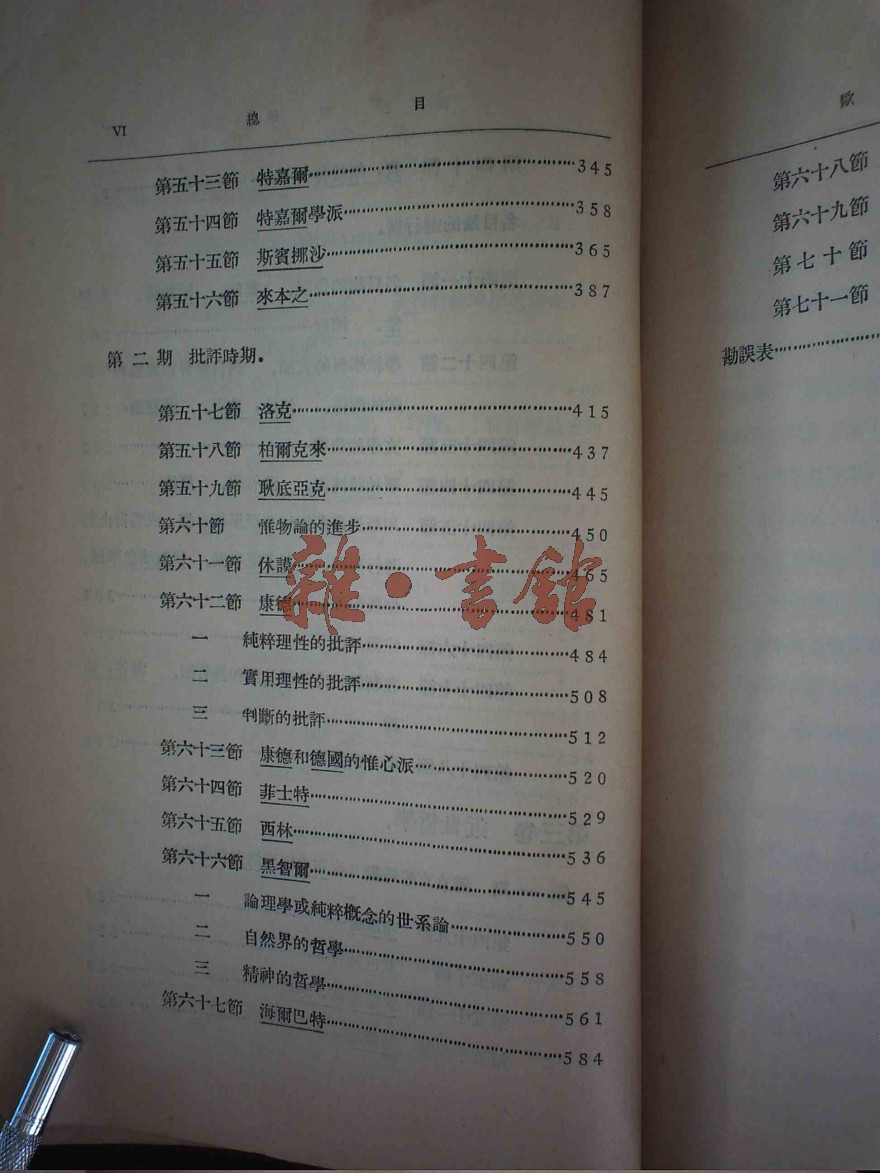 VI 總 目
第五十三節 特嘉爾……345
第五十四節 特嘉爾學派……358
第五十五節 斯賓挪沙……365
第五十六節 來本之……387
第二期 批評時期。
第五十七節 洛克……415
第五十八節 柏爾克來……437
第五十九節 耿底亞克……445
第六十節 惟物論的進步……450
第六十一節 休謨……465
第六十二節 康德……481
一 純粹理性的批評……484
二 實用理性的批評……508
三 判斷的批評……512
第六十三節 康德和德國的惟心派……520
第六十四節 菲士特……529
第六十五節 西林……536
第六十六節 黑智爾……545
一 論理學或純粹概念的世系論……550
二 自然界的哲學……558
三 精神的哲學……561
第六十七節 海爾巴特……584
雜·書館
歐
第六十八節
第六十九節
第七十節
第七十一節
勘誤表……